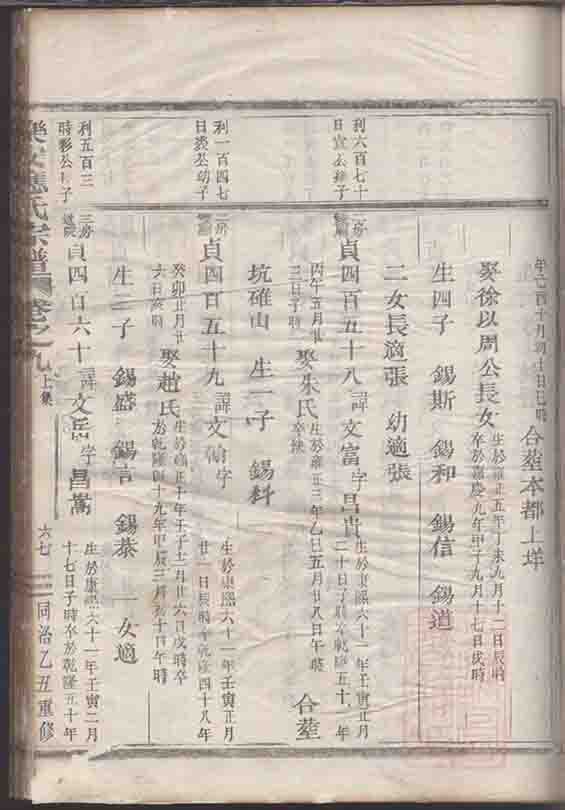 年乙酉十月初十日巳時 合塟本都上垟
娶徐以周公長女 生於雍正五年丁未九月十二日辰時
卒於嘉慶九年甲子九月十七日戌時
生四子 錫斯 錫和 錫信 錫道
二女長適張 幼適張
利六百七十
日宣公 子
二房
貞四百五十八 諱文富字昌貴 生於康熙六十一年壬寅正月
二十日子時卒乾隆五十 年
丙午五月廿
三日子時
娶朱氏 生於雍正三年乙巳五月廿八日午時
卒缺
合塟
坑碓山 生一子 錫科
利一百四七
日 公幼子
二房
貞四百五十九 諱文 字
生於康熙六十一年壬寅正月
廿一日辰時卒乾隆四十八年
癸卯正月廿
六日亥時
娶趙氏 生於雍正十年壬子十二月廿六日戌時卒
於乾隆四十九年甲辰三月初十日午時
生三子 錫盛 錫言 錫泰 一女適
利五百三
時彩公 子
三房
貞四百六十 諱文岳字昌嵩 生於康熙六十一年壬寅二月
十七日子時卒於乾隆五十年
應氏宗譜 卷之九 上集 六七 同治乙丑重修